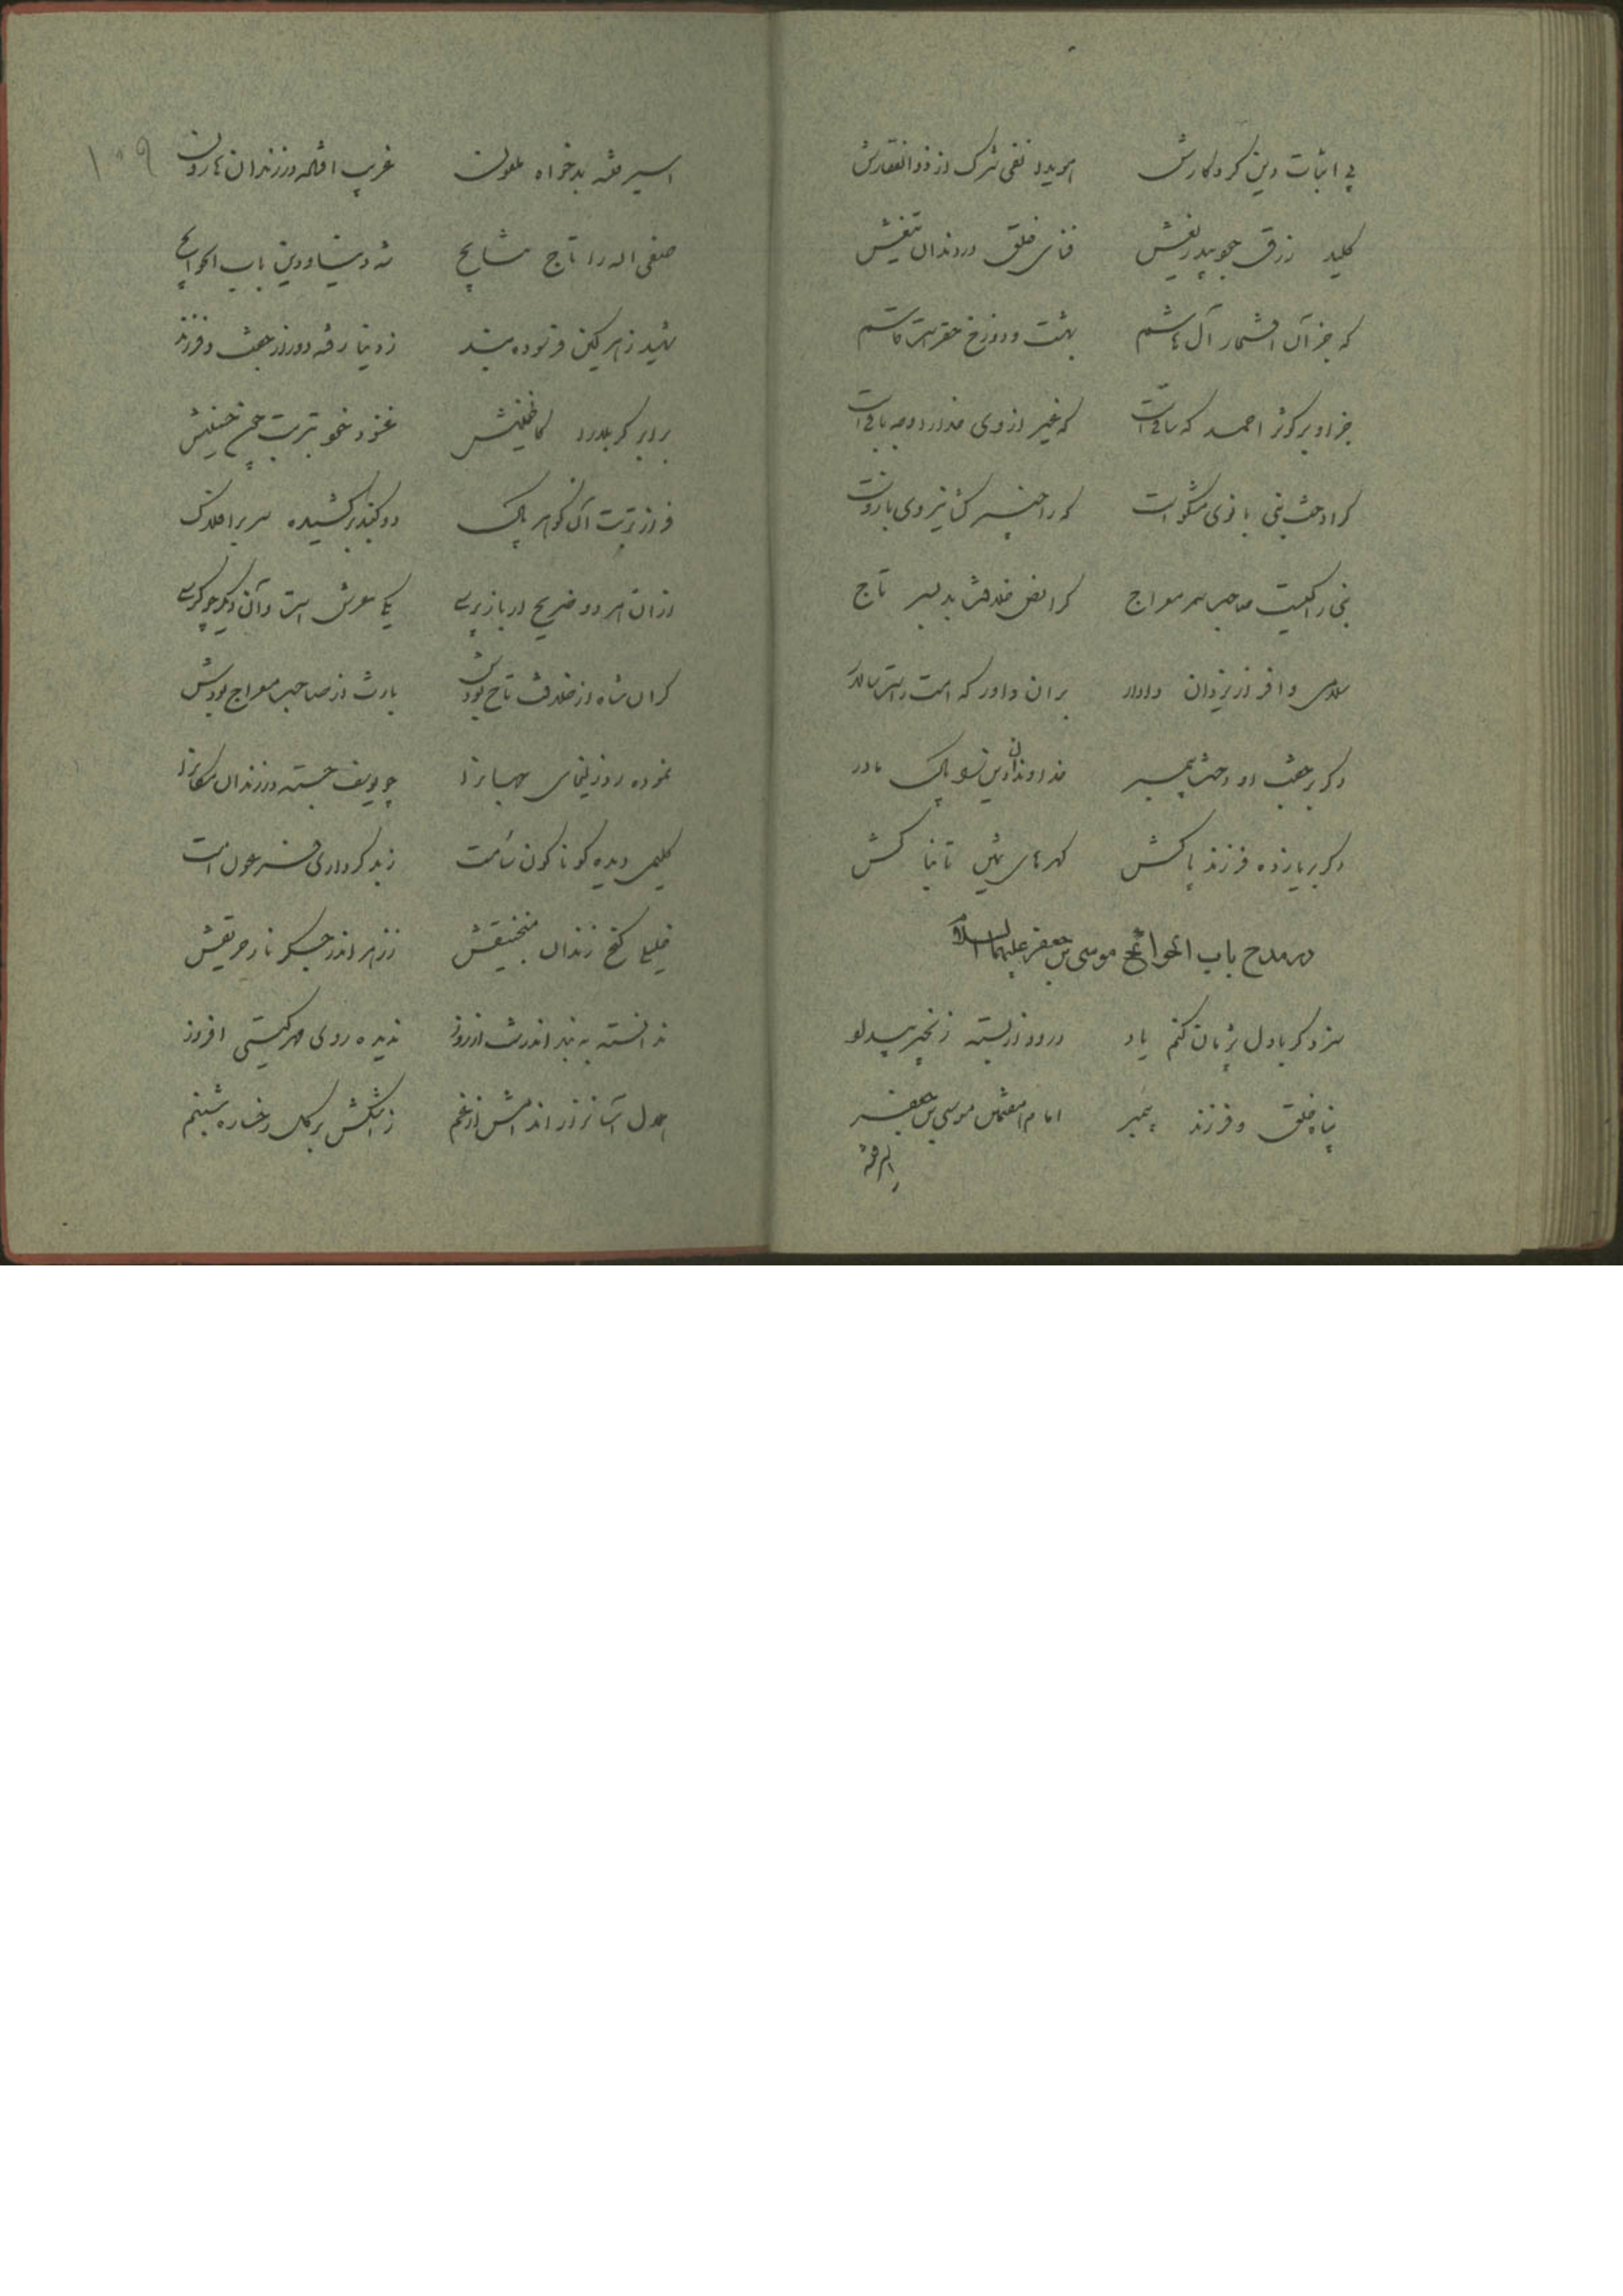 پی اثبات دین کردگارش
هویدا نفی شرک از ذوالفقارش
کلید رزق جوید ریغش
فنای خلق دندان تیغش
که جز آن افتخار آل هاشم
بهشت و دوزخ حق راست قاسم
جز او بر کوثر احمد که ساقی است
که غیر از وی خدا را وجه باقی است
کرا جفت نبی بانوی مشکو است
که را خیبر کش نیروی بازوست
نبی را کیست صاحب سر معراج
کرا نص خلافت بد بسر تاج
سلامی وافر از یزدان دادار
بران داور که امت راست سالار
دگر بر جفت او دخت پیمبر
خداوندان دین را پاک مادر
دگر بر یازده فرزند پاکش
گهرهای ثمین تابناکش
در مدح باب الحوائج موسی بن جعفر علیهما السلام
سزد گر با دل پژمان کنم یاد
در وداز بسته زنجیر بیداد
پناه خلق و فرزند پیمبر
امام هفتمین موسی بن جعفر
اسیر فتنه بدخواه ملعون
غریب افتاده در زندان هارون
۱۰۹
صفی اله را تاج مشایح
شه دنیا و دین باب الحوایج
شهید زهر کین فرسوده بند
ز دنیا رفته دور از جفت و فرزند
برابر کربلا را کاظمینش
غنوده نحو تربت چون حسینش
فراز تربت آن گوهر پاک
دو گنبد برکشیده سر بر افلاک
از آن هر دو ضریح ار باز پرسی
یکی عرش است و آن دیگر چو کرسی
کران شاه از خلافت تاج بودش
بارث از صاحب معراج بودش
نموده روز لیثمای
چو یوسف جسته در زندان مکانرا
کلیمی دیده گوناگون شأمت
ز بد کرداری فرعون امت
خلیلی کنج زندان منجنیقش
ز زهر اندر جگر نار حریقش
ندانسته به بند اندر شب از روز
ندیده روی مهر گیتی افروز
ز اشکش بر گل رخساره شبنم